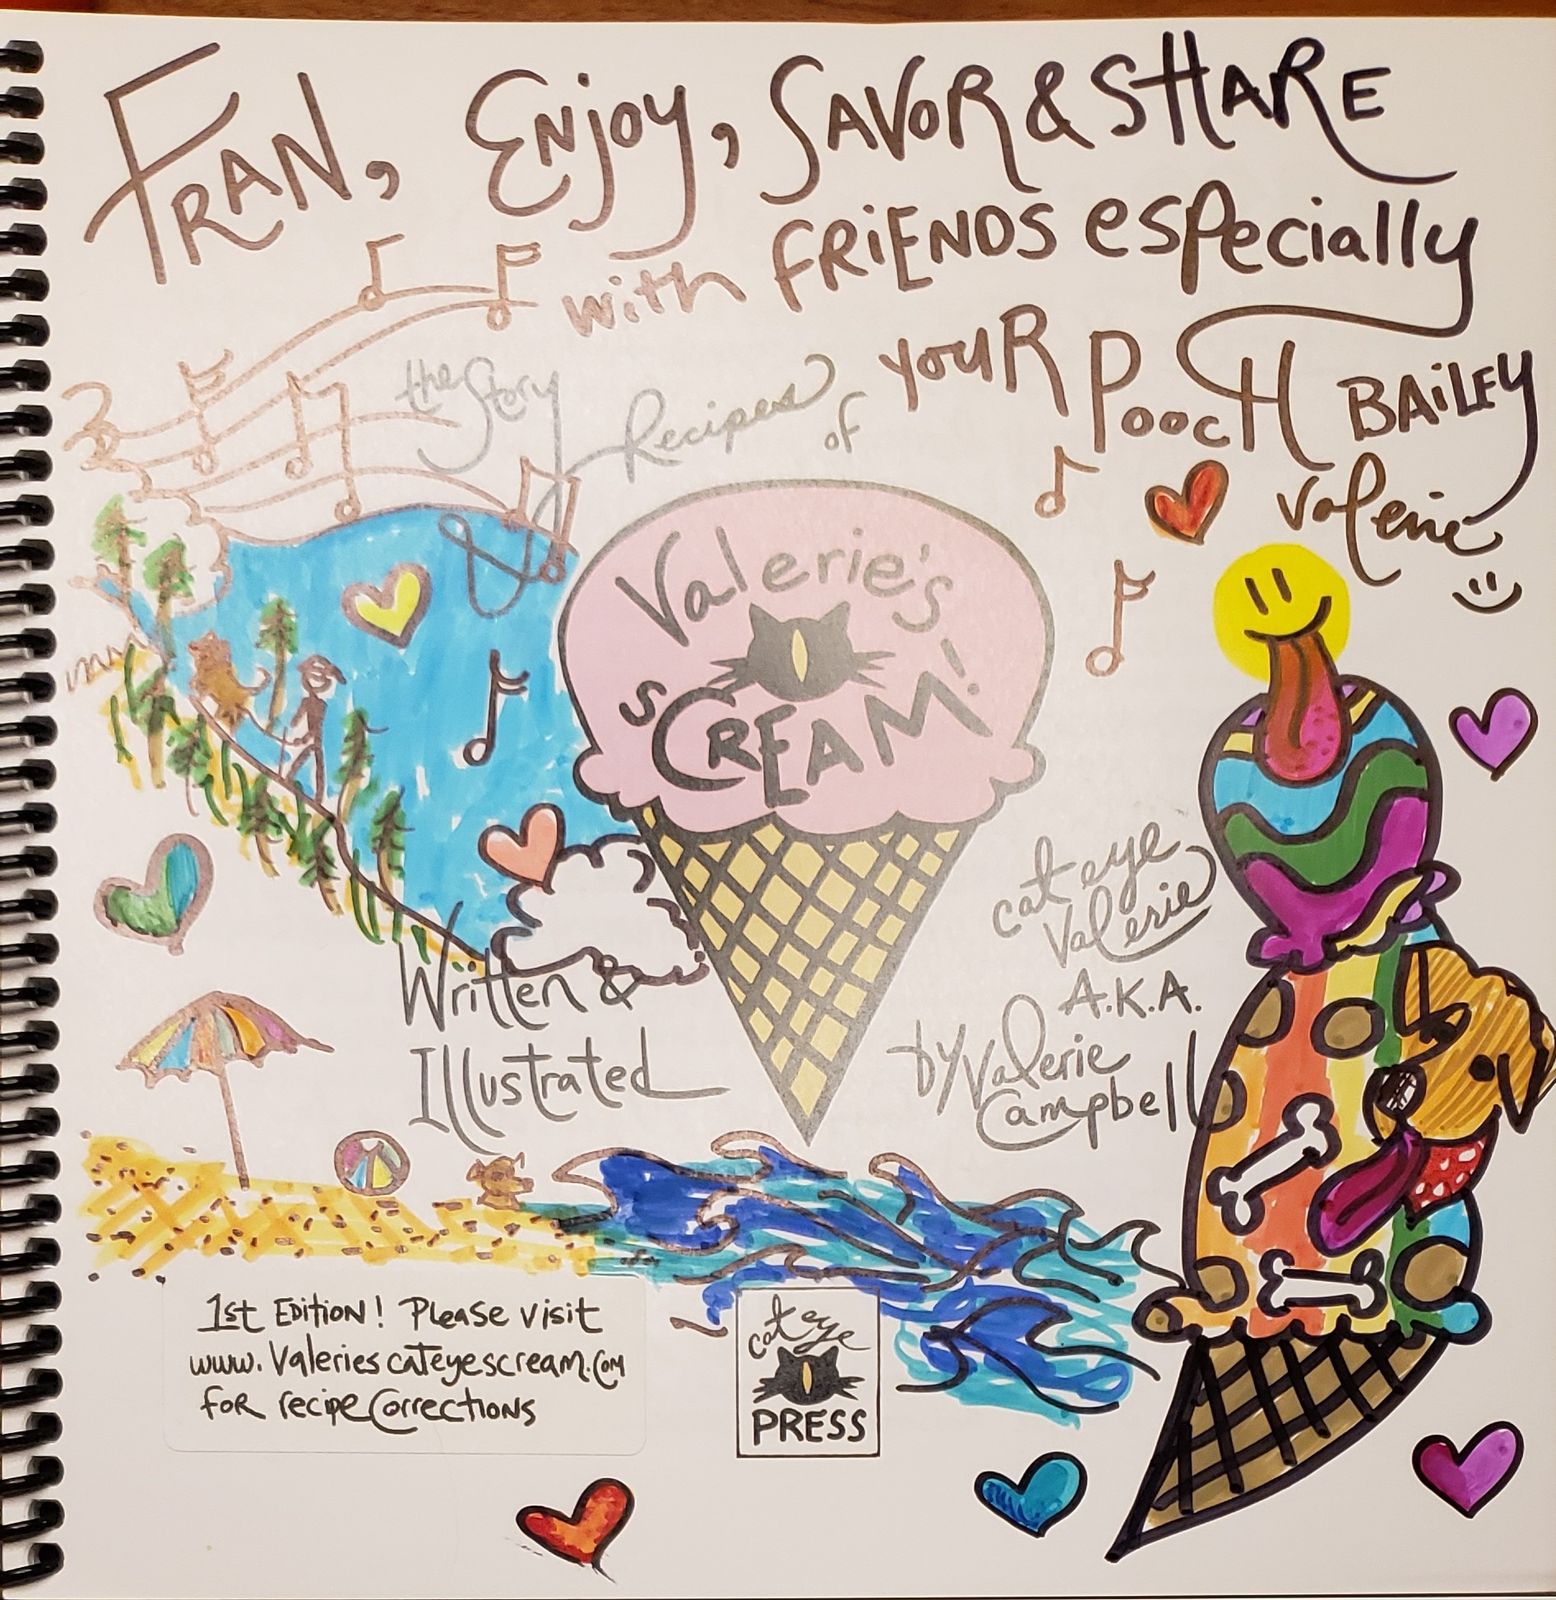 FRAN, ENJOY, SAVOR & SHARE
with FRiENDS especially
youR POOCH BAiLEY
Valerie
the Story
Recipes of
Valerie's
sCREAM!
Written &
Illustrated
cat eye
Valerie
A.K.A.
by Valerie
Campbell
1st EDITION! Please visit
www.Valeriescateyescream.com
for recipe Corrections
cat eye
PRESS